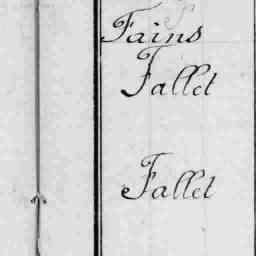 Fains
Fallet
Fallet